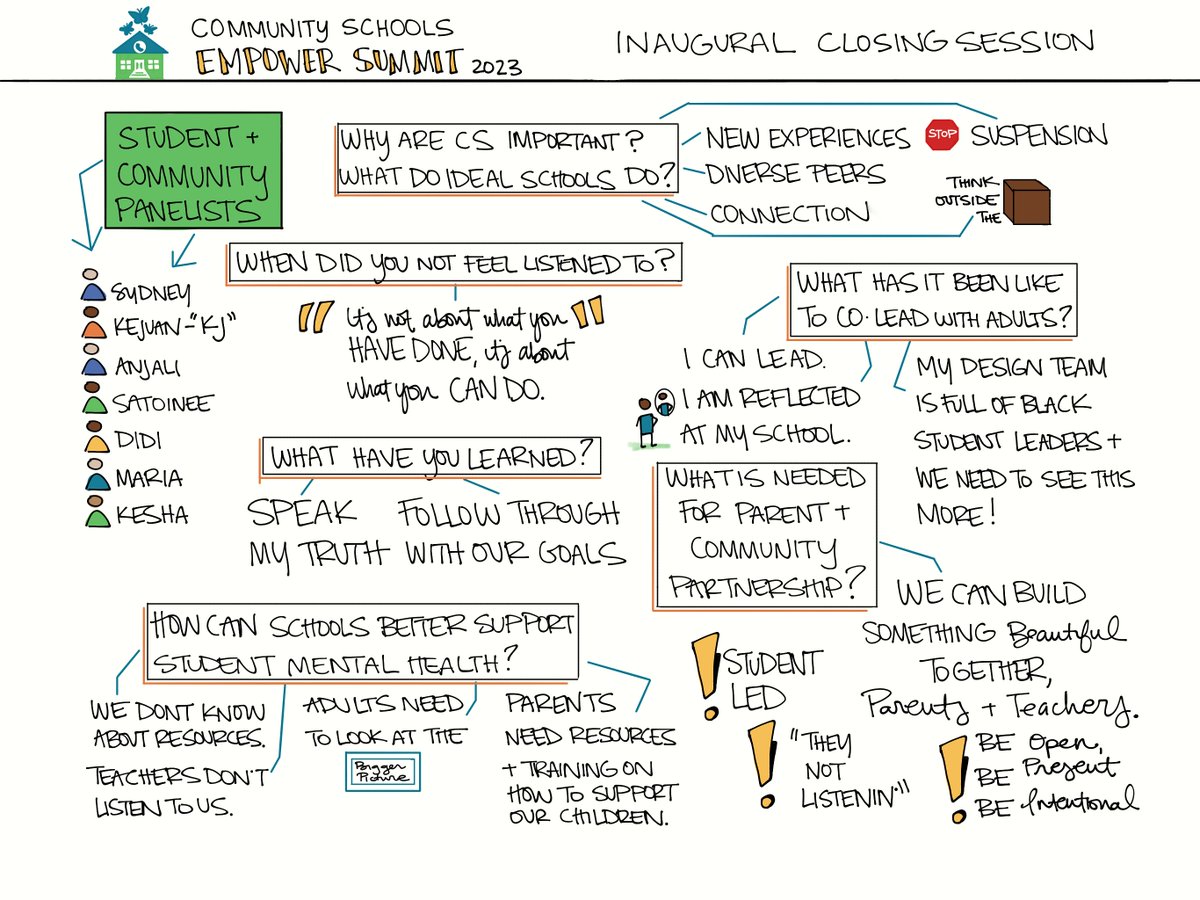 COMMUNITY SCHOOLS
EMPOWER SUMMIT 2023
INAUGURAL CLOSING SESSION
STUDENT +
COMMUNITY
PANELISTS
SYDNEY
KEJUAN-"KJ"
ANJALI
SATOINEE
DIDI
MARIA
KESHA
WHY ARE CS IMPORTANT?
WHAT DO IDEAL SCHOOLS DO?
NEW EXPERIENCES
DIVERSE PEERS
CONNECTION
STOP SUSPENSION
THINK
OUTSIDE
THE
WHEN DID YOU NOT FEEL LISTENED TO?
"It's not about what you
HAVE DONE, it's about
what you CAN DO."
WHAT HAS IT BEEN LIKE
TO CO·LEAD WITH ADULTS?
I CAN LEAD.
I AM REFLECTED
AT MY SCHOOL.
MY DESIGN TEAM
IS FULL OF BLACK
STUDENT LEADERS +
WE NEED TO SEE THIS
MORE!
WHAT HAVE YOU LEARNED?
SPEAK
MY TRUTH
FOLLOW THROUGH
WITH OUR GOALS
WHAT IS NEEDED
FOR PARENT +
COMMUNITY
PARTNERSHIP?
WE CAN BUILD
SOMETHING Beautiful
TOGETHER,
Parents + Teachers.
! STUDENT
LED
! "THEY
NOT
LISTENIN'"
! BE Open,
BE Present
BE Intentional
HOW CAN SCHOOLS BETTER SUPPORT
STUDENT MENTAL HEALTH?
WE DONT KNOW
ABOUT RESOURCES.
TEACHERS DON'T
LISTEN TO US.
ADULTS NEED
TO LOOK AT THE
Bigger
Picture
PARENTS
NEED RESOURCES
+ TRAINING ON
HOW TO SUPPORT
OUR CHILDREN.